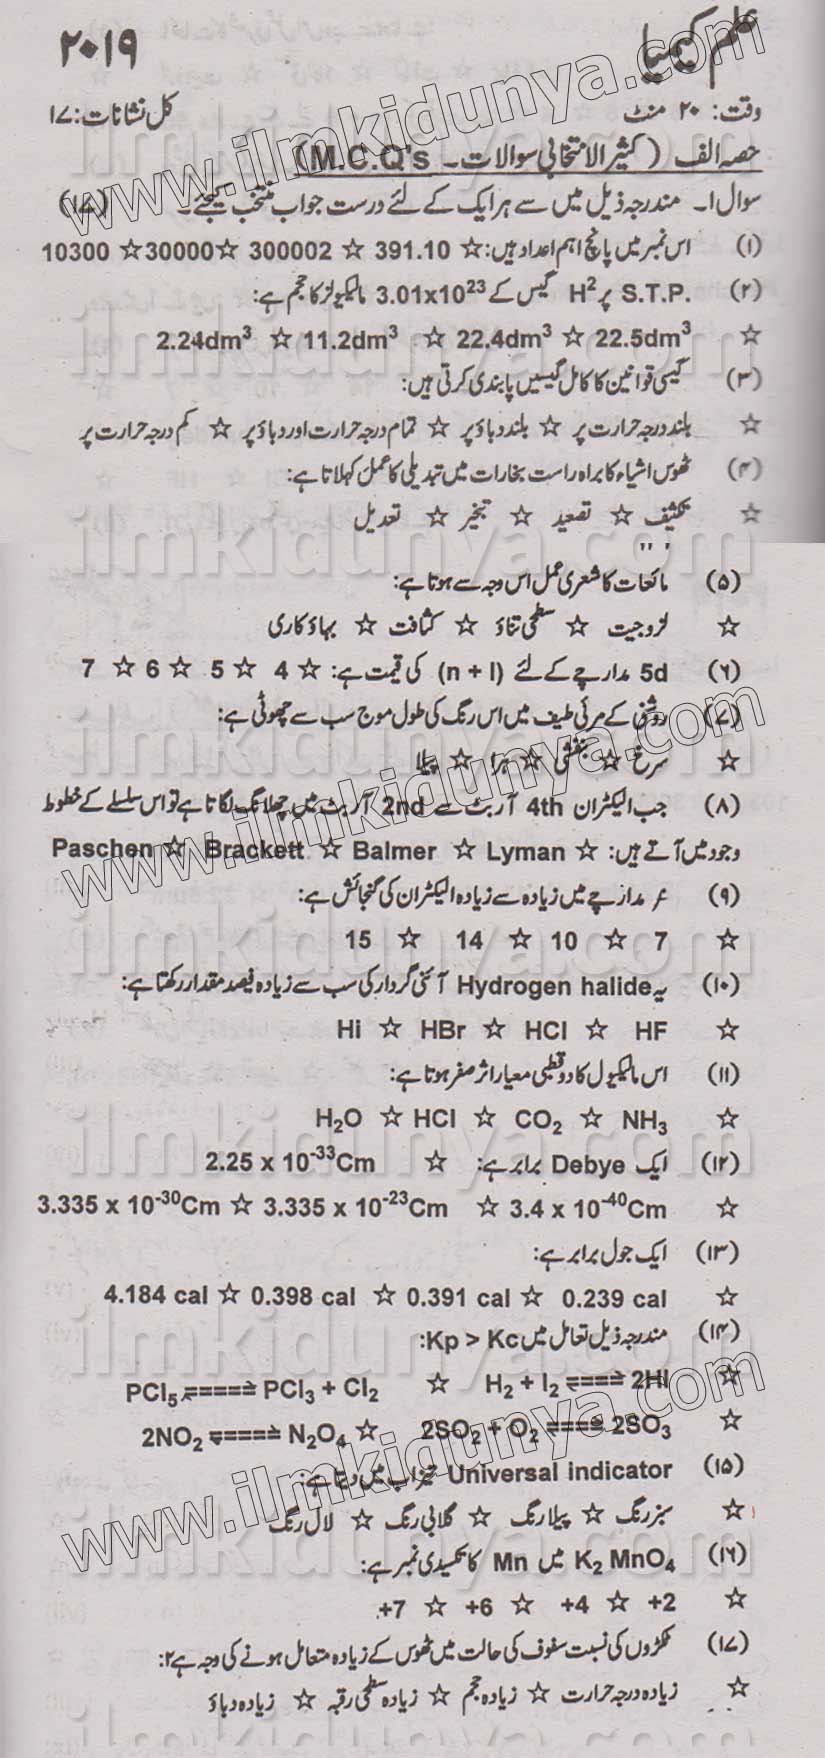 علم کیمیا ۲۰۱۹
وقت: ۲۰ منٹ کل نشانات: ۱۷
حصہ الف ( کثیر الانتخابی سوالات ۔ M.C.Q's)
سوال ۱۔ مندرجہ ذیل میں سے ہر ایک کے لئے درست جواب منتخب کیجئے۔ (۱۷)
(۱) اس نمبر میں پانچ اہم اعداد ہیں: ☆ 391.10 ☆ 300002 ☆ 30000 ☆ 10300
(۲) S.T.P. پر H² گیس کے 3.01x10²³ مالیکولز کا حجم ہے:
☆ 22.5dm³ ☆ 22.4dm³ ☆ 11.2dm³ ☆ 2.24dm³
(۳) گیسی قوانین کا کامل گیسیں پابندی کرتی ہیں:
☆ بلند درجہ حرارت پر ☆ بلند دباؤ پر ☆ تمام درجہ حرارت اور دباؤ پر ☆ کم درجہ حرارت پر
(۴) ٹھوس اشیاء کا براہ راست بخارات میں تبدیلی کا عمل کہلاتا ہے:
☆ تکثیف ☆ تصعید ☆ تبخیر ☆ تعدیل
(۵) مائعات کا شعری عمل اس وجہ سے ہوتا ہے:
☆ لزوجیت ☆ سطحی تناؤ ☆ کثافت ☆ بہاؤ کاری
(۶) 5d مدارچے کے لئے (n + l) کی قیمت ہے: ☆ 4 ☆ 5 ☆ 6 ☆ 7
(۷) روشنی کے مرئی طیف میں اس رنگ کی طول موج سب سے چھوٹی ہے:
☆ سرخ ☆ بنفشی ☆ ہرا ☆ پیلا
(۸) جب الیکٹران 4th آربٹ سے 2nd آربٹ میں چھلانگ لگاتا ہے تو اس سلسلے کے خطوط
وجود میں آتے ہیں: ☆ Lyman ☆ Balmer ☆ Brackett ☆ Paschen
(۹) مدارچے میں زیادہ سے زیادہ الیکٹران کی گنجائش ہے:
☆ 7 ☆ 10 ☆ 14 ☆ 15
(۱۰) یہ Hydrogen halide آئنی گردار کی سب سے زیادہ فیصد مقدار رکھتا ہے:
☆ HF ☆ HCl ☆ HBr ☆ Hi
(۱۱) اس مالیکیول کا دو قطبی معیار اثر صفر ہوتا ہے:
☆ NH₃ ☆ CO₂ ☆ HCl ☆ H₂O
(۱۲) ایک Debye برابر ہے: ☆ 2.25 x 10⁻³³Cm
☆ 3.4 x 10⁻⁴⁰Cm ☆ 3.335 x 10⁻²³Cm ☆ 3.335 x 10⁻³⁰Cm
(۱۳) ایک جول برابر ہے:
☆ 0.239 cal ☆ 0.391 cal ☆ 0.398 cal ☆ 4.184 cal
(۱۴) مندرجہ ذیل تعامل میں Kp > Kc:
☆ H₂ + I₂ ⇌ 2HI ☆ PCl₅ ⇌ PCl₃ + Cl₂
☆ 2SO₂ + O₂ ⇌ 2SO₃ ☆ 2NO₂ ⇌ N₂O₄
(۱۵) Universal indicator تیزاب میں دیتا ہے:
☆ سبز رنگ ☆ پیلا رنگ ☆ گلابی رنگ ☆ لال رنگ
(۱۶) K₂ MnO₄ میں Mn کا تکسیدی نمبر ہے:
☆ +2 ☆ +4 ☆ +6 ☆ +7
(۱۷) ٹکڑوں کی نسبت سفوف کی حالت میں ٹھوس کے زیادہ متعامل ہونے کی وجہ ہے ۲:
☆ زیادہ درجہ حرارت ☆ زیادہ حجم ☆ زیادہ سطحی رقبہ ☆ زیادہ دباؤ
www.ilmkidunya.com